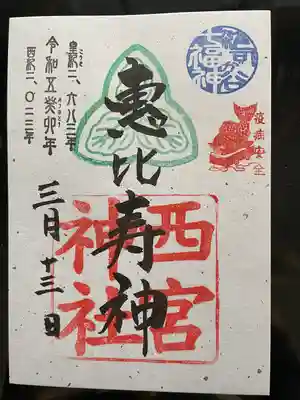 七福神
惠比寿神
西宮
神社
皇紀二、六八三年
令和五癸卯年
西暦二、〇二三年
三月十三日